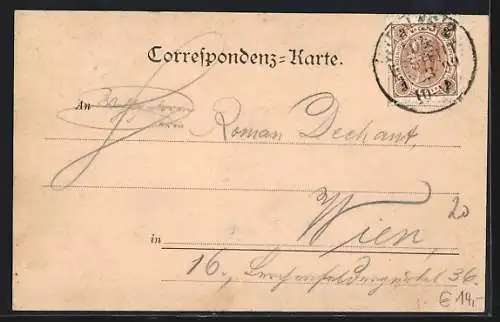 Correspondenz-Karte.
An
Roman Dechant,
Wien,
20
in
16., Lerchenfeldergürtel 36.
€ 14,-